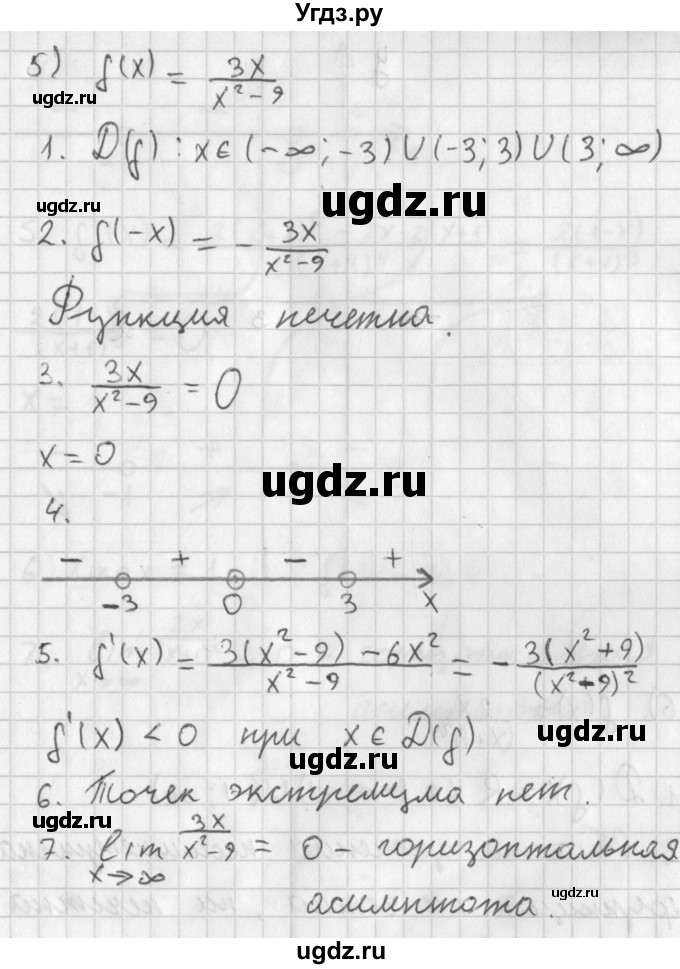 Угдз.ру
5) f(x) = 3x/(x² - 9)
ugdz.ru
1. D(f) : x ∈ (-∞; -3) ∪ (-3; 3) ∪ (3; ∞)
ugdz.ru
ugdz.ru
2. f(-x) = - 3x/(x² - 9)
Функция нечетна.
3. 3x/(x² - 9) = 0
x = 0
ugdz.ru
4.
- + - +
-3 0 3 x
ugdz.ru
5. f'(x) = (3(x² - 9) - 6x²)/(x² - 9) = - 3(x² + 9)/(x² - 9)²
f'(x) < 0 при x ∈ D(f)
ugdz.ru
6. Точек экстремума нет.
ugdz.ru
7. lim x→∞ 3x/(x² - 9) = 0 - горизонтальная
асимптота.
ugdz.ru
ugdz.ru